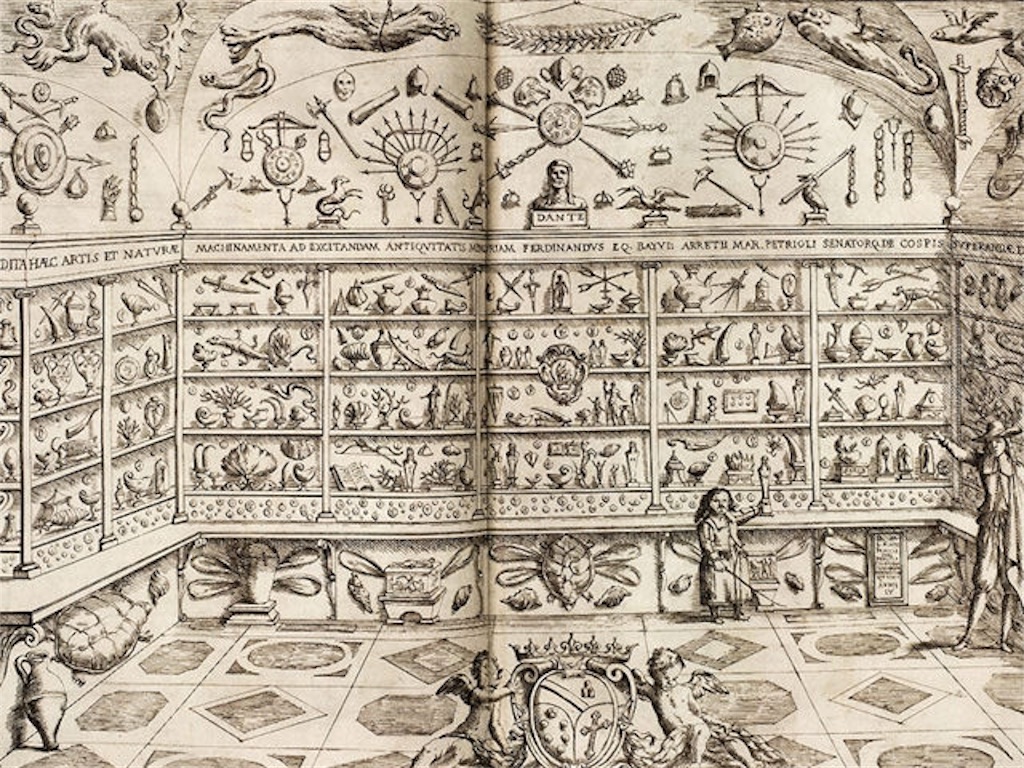 DANTE
DITA HÆC ARTIS ET NATURÆ MACHINAMENTA AD EXCITANDAM ANTIQVITATIS RIAM FERDINANDVS EQ. BAYVL ARRETII MAR. PETRIOLI SENATORQ. DE COSPIS